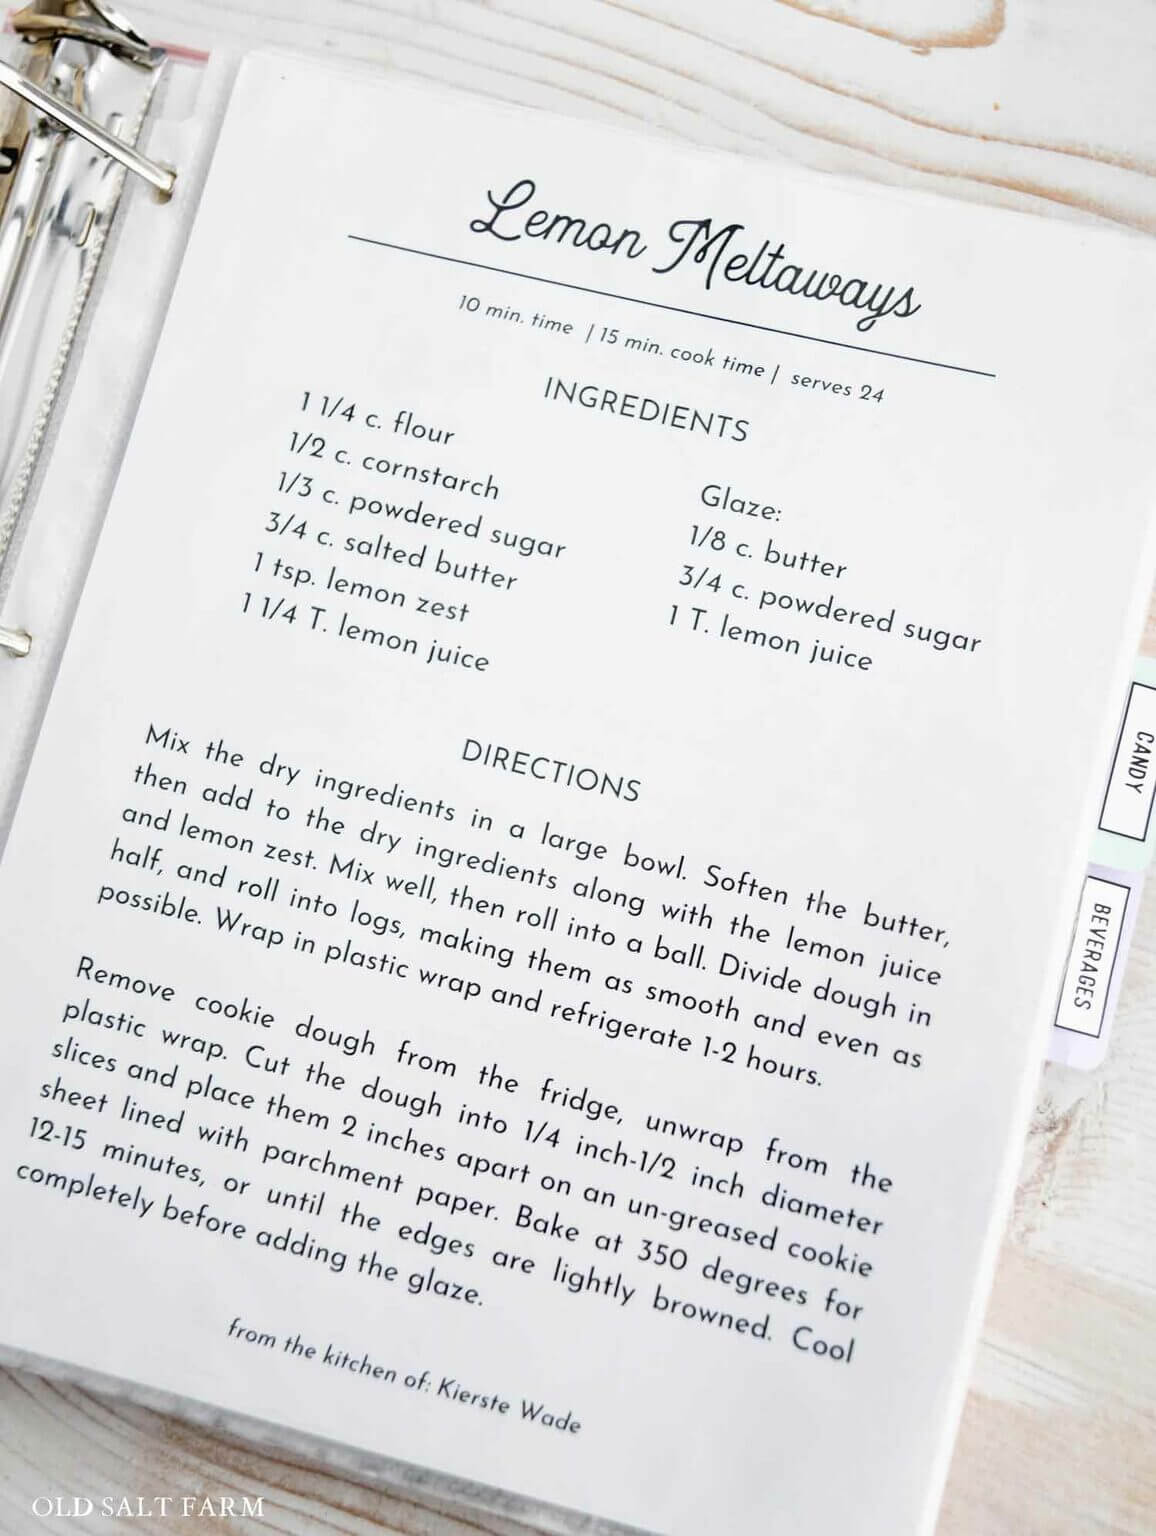 Lemon Meltaways
10 min. time | 15 min. cook time | serves 24
INGREDIENTS
1 1/4 c. flour
1/2 c. cornstarch
1/3 c. powdered sugar
3/4 c. salted butter
1 tsp. lemon zest
1 1/4 T. lemon juice
Glaze:
1/8 c. butter
3/4 c. powdered sugar
1 T. lemon juice
DIRECTIONS
Mix the dry ingredients in a large bowl. Soften the butter,
then add to the dry ingredients along with the lemon juice
and lemon zest. Mix well, then roll into a ball. Divide dough in
half, and roll into logs, making them as smooth and even as
possible. Wrap in plastic wrap and refrigerate 1-2 hours.
Remove cookie dough from the fridge, unwrap from the
plastic wrap. Cut the dough into 1/4 inch-1/2 inch diameter
slices and place them 2 inches apart on an un-greased cookie
sheet lined with parchment paper. Bake at 350 degrees for
12-15 minutes, or until the edges are lightly browned. Cool
completely before adding the glaze.
from the kitchen of: Kierste Wade
CANDY
BEVERAGES
OLD SALT FARM